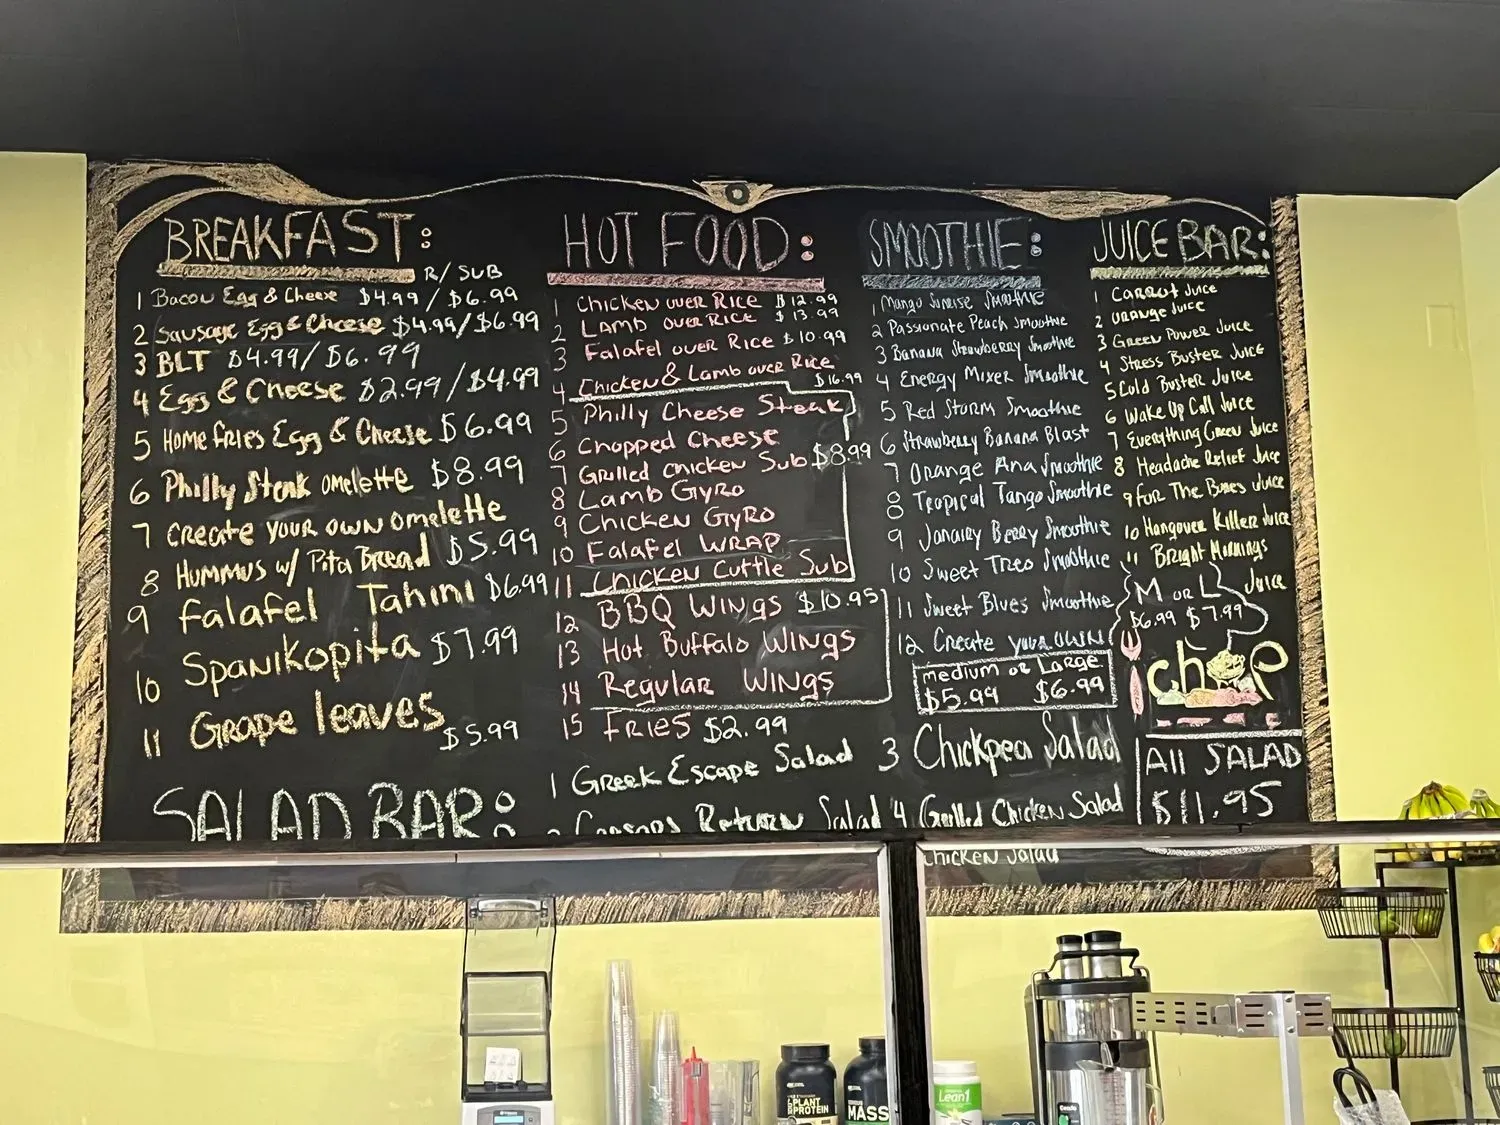 BREAKFAST:
R/SUB
1 Bacon Egg & Cheese $4.99/$6.99
2 Sausage Egg & Cheese $4.99/$6.99
3 BLT $4.99/$6.99
4 Egg & Cheese $2.99/$4.99
5 Home fries Egg & Cheese $6.99
6 Philly Steak omelette $8.99
7 Create your own omelette
8 Hummus w/ Pita Bread $5.99
9 Falafel Tahini $6.99
10 Spanikopita $7.99
11 Grape leaves $5.99
HOT FOOD:
1 Chicken over Rice $12.99
2 Lamb over Rice $13.99
3 Falafel over Rice $10.99
4 Chicken & Lamb over Rice $16.99
5 Philly Cheese Steak
6 Chopped Cheese
7 Grilled Chicken Sub $8.99
8 Lamb Gyro
9 Chicken Gyro
10 Falafel Wrap
11 Chicken Cuttle Sub
12 BBQ Wings $10.95
13 Hot Buffalo Wings
14 Regular Wings
15 Fries $2.99
SMOOTHIE:
1 Mango Sunrise Smoothie
2 Passionate Peach Smoothie
3 Banana Strawberry Smoothie
4 Energy Mixer Smoothie
5 Red Storm Smoothie
6 Strawberry Banana Blast
7 Orange Ana Smoothie
8 Tropical Tango Smoothie
9 Janairy Berry Smoothie
10 Sweet Treo Smoothie
11 Sweet Blues Smoothie
12 Create your own
medium or Large
$5.99 $6.99
JUICE BAR:
1 Carrot Juice
2 Orange Juice
3 Green Power Juice
4 Stress Buster Juice
5 Cold Buster Juice
6 Wake Up Call Juice
7 Everything Green Juice
8 Headache Relief Juice
9 For The Bones Juice
10 Hangover Killer Juice
11 Bright Mornings Juice
M or L
$6.99 $7.99
chop
SALAD BAR:
1 Greek Escape Salad
2 Ceasars Return Salad
3 Chickpea Salad
4 Grilled Chicken Salad
Chicken Salad
All SALAD
$11.95
PLANT
PROTEIN
MASS
Lean1